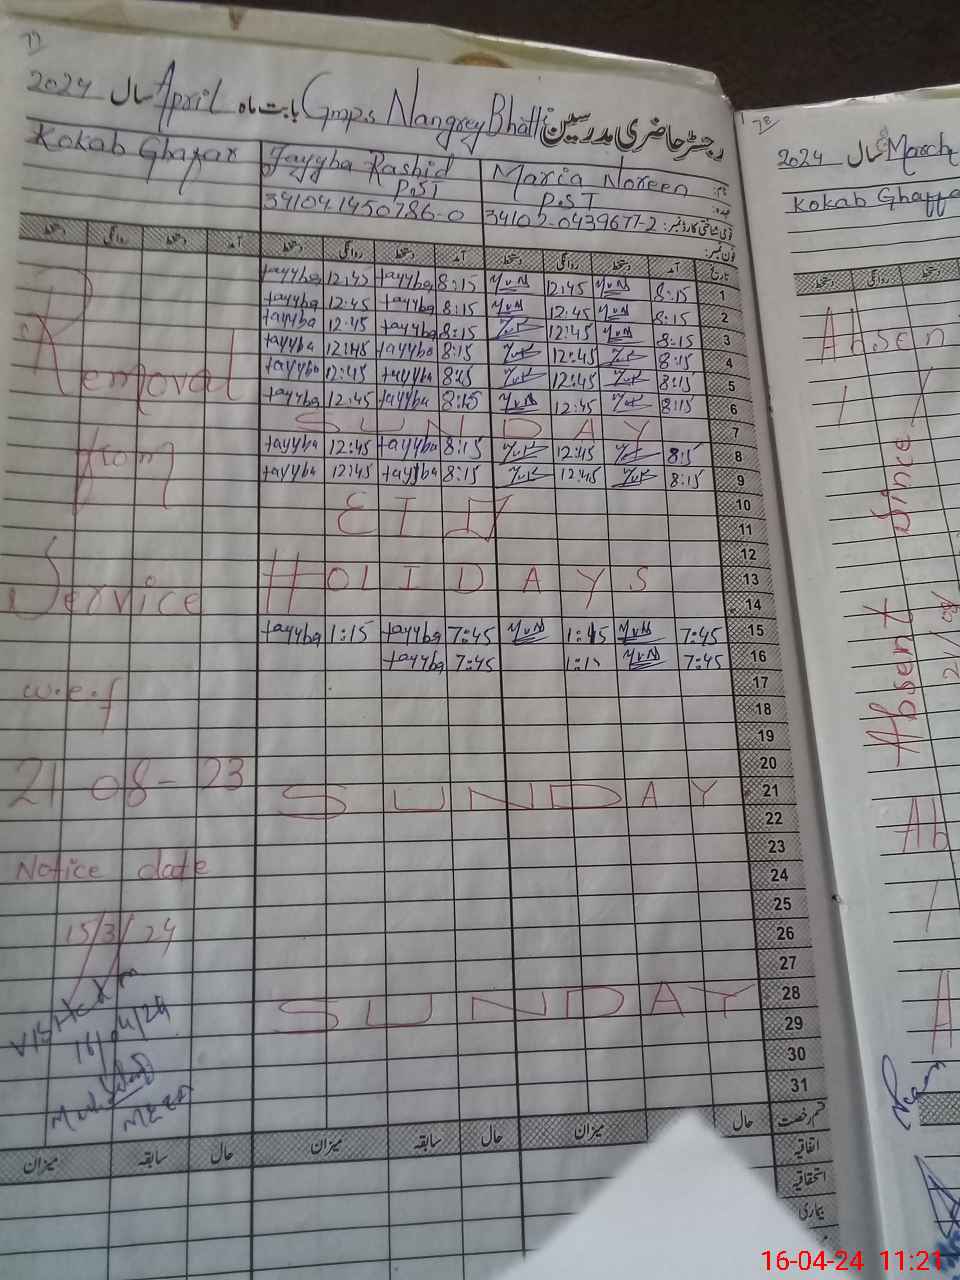 77
رجسٹر حاضری مدرسین Gmps Nangrey Bhatti بابت ماہ April سال 2024
نام: Maria Noreen Tayyba Rashid Kokab Ghafar
عہدہ: P.ST P.ST
قومی شناختی کارڈ نمبر: 34102-0439677-2 341041450786-0
فون نمبر:
تاریخ آمد دستخط روانگی دستخط آمد دستخط روانگی دستخط آمد دستخط روانگی دستخط
1 8:15 MUN 12:45 MUN 8:15 tayyba 12:45 tayyba
2 8:15 MUN 12:45 MUN 8:15 tayyba 12:45 tayyba
3 8:15 MUN 12:45 8:15 tayyba 12:45 tayyba
4 8:15 12:45 8:15 tayyba 12:45 tayyba
5 8:15 12:45 8:15 tayyba 12:45 tayyba
6 8:15 12:45 MUN 8:15 tayyba 12:45 tayyba
7 SUNDAY
8 8:15 12:45 8:15 tayyba 12:45 tayyba
9 8:15 12:45 8:15 tayyba 12:45 tayyba
10
11 EID
12
13 HOLIDAYS
14
15 7:45 MUN 1:15 MUN 7:45 tayyba 1:15 tayyba
16 7:45 MUN 1:15 7:45 tayyba
17
18
19
20
21 SUNDAY
22
23
24
25
26
27
28 SUNDAY
29
30
31
Removal
from
Service
w.e.f
21 08-23
Notice date
15/3/24
Visit
16/04/24
MEA
قسم رخصت حال میزان حال سابقہ میزان حال سابقہ میزان
اتفاقیہ
استحقاقیہ
بیماری
78
سال March 2024
Kokab Ghaffa
روانگی دستخط
Absen
Absent since
21/08/
Ab
A
16-04-24 11:21